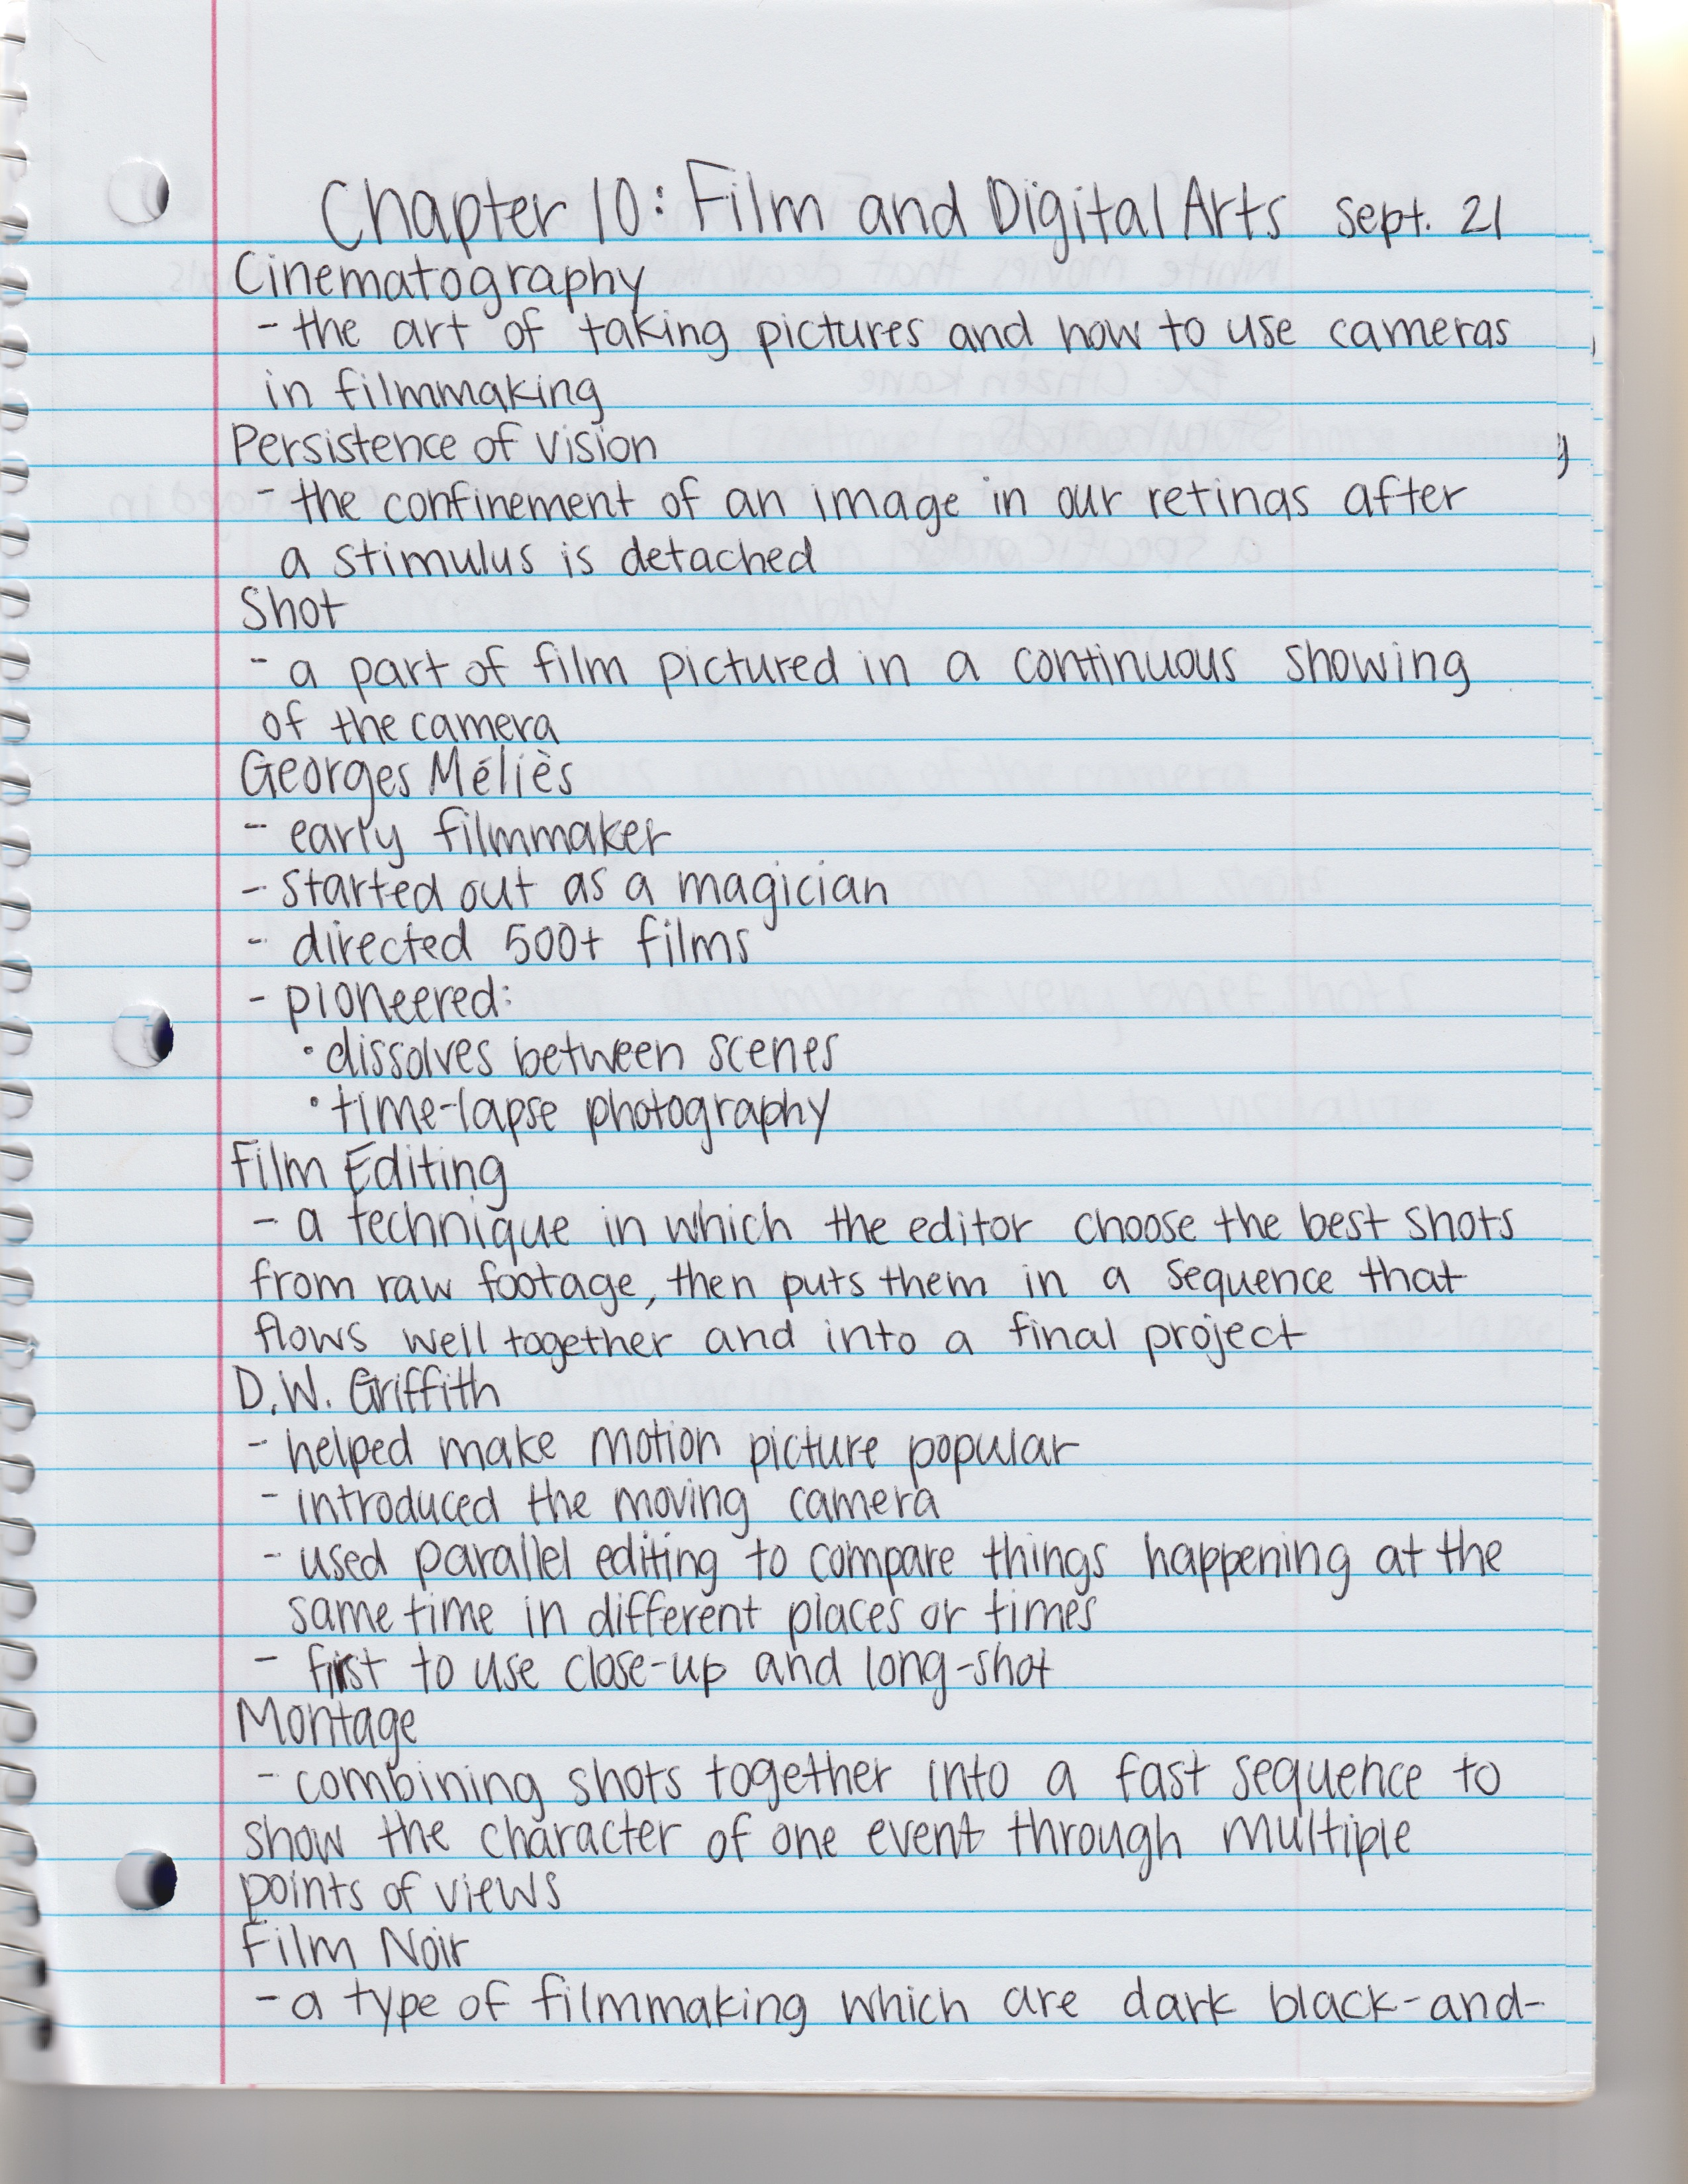 Chapter 10: Film and Digital Arts Sept. 21
Cinematography
- the art of taking pictures and how to use cameras
in filmmaking
Persistence of vision
- the confinement of an image in our retinas after
a stimulus is detached
Shot
- a part of film pictured in a continuous showing
of the camera
Georges Méliès
- early filmmaker
- started out as a magician
- directed 500+ films
- pioneered:
• dissolves between scenes
• time-lapse photography
Film Editing
- a technique in which the editor choose the best shots
from raw footage, then puts them in a sequence that
flows well together and into a final project
D.W. Griffith
- helped make motion picture popular
- introduced the moving camera
- used parallel editing to compare things happening at the
same time in different places or times
- first to use close-up and long-shot
Montage
- combining shots together into a fast sequence to
show the character of one event through multiple
points of views
Film Noir
- a type of filmmaking which are dark black-and-